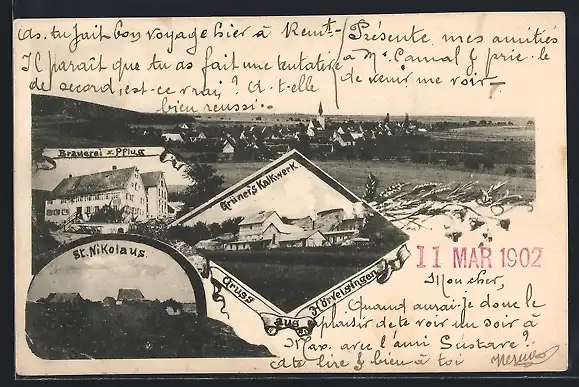 As-tu fait bon voyage hier à
Il paraît que tu as fait une tentative
de record, est-ce vrai? A-t-elle
bien reussi..
Présente mes amitiés
à Mr. & prie-le
de venir me voir.
Brauerei z. Pflug
Grüner's Kalkwerk
St. Nikolaus.
Gruss
aus
Hörvelsingen
11 MAR 1902
Mon cher,
Quand aurai-je donc le
plaisir de te voir un soir à
avec l'ami Gustave?.
te lire & bien à toi